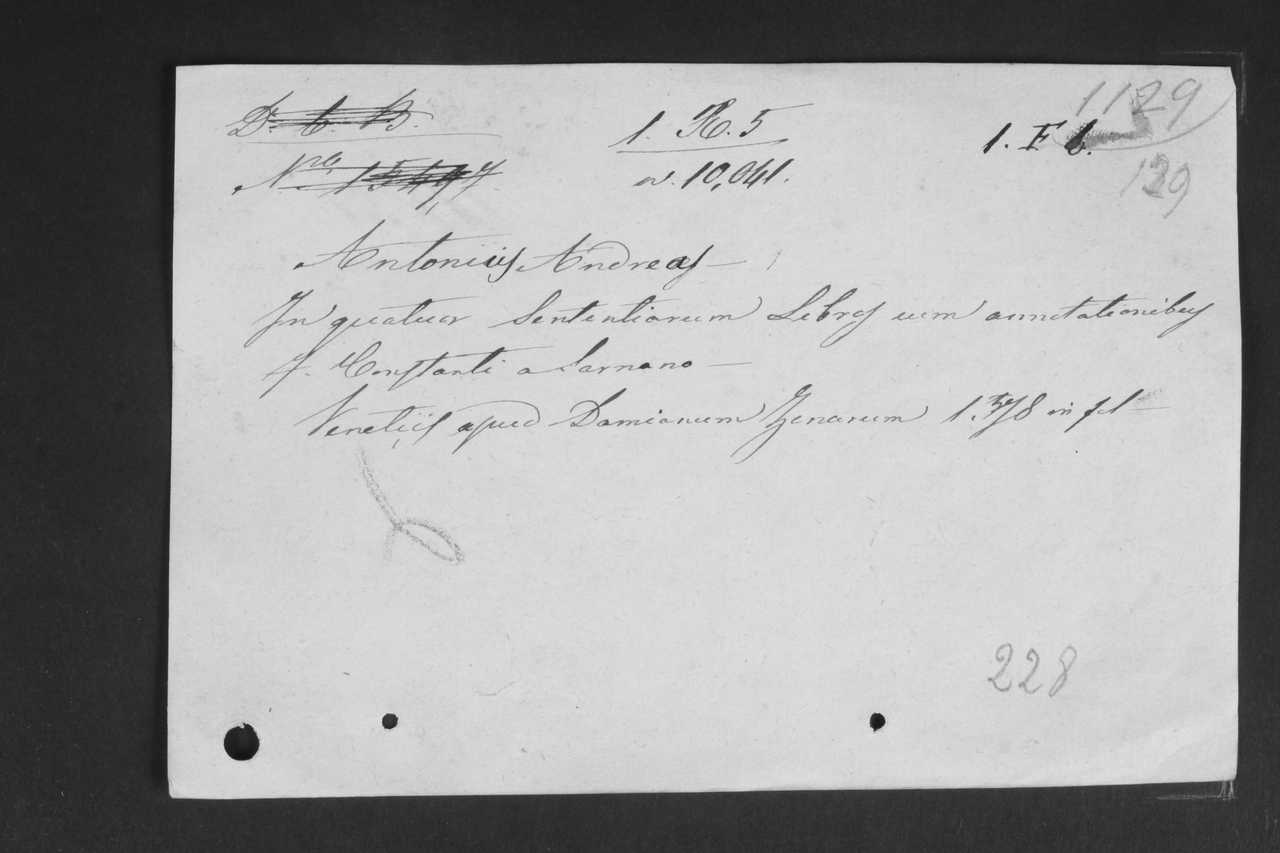 D. b. B.
1. H. 5
1. F b.
1129
Nro 15497
n. 10,041.
129
Antonius Andreas —
In quatuor Sententiarum Libros cum annotationibus
F. Constanti a Sarnano —
Venetijs apud Damianum Zenarum 1578 in fol —
228